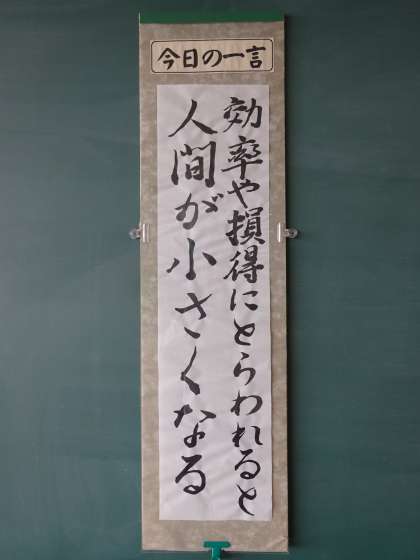 今日の一言
効率や損得にとらわれると
人間が小さくなる